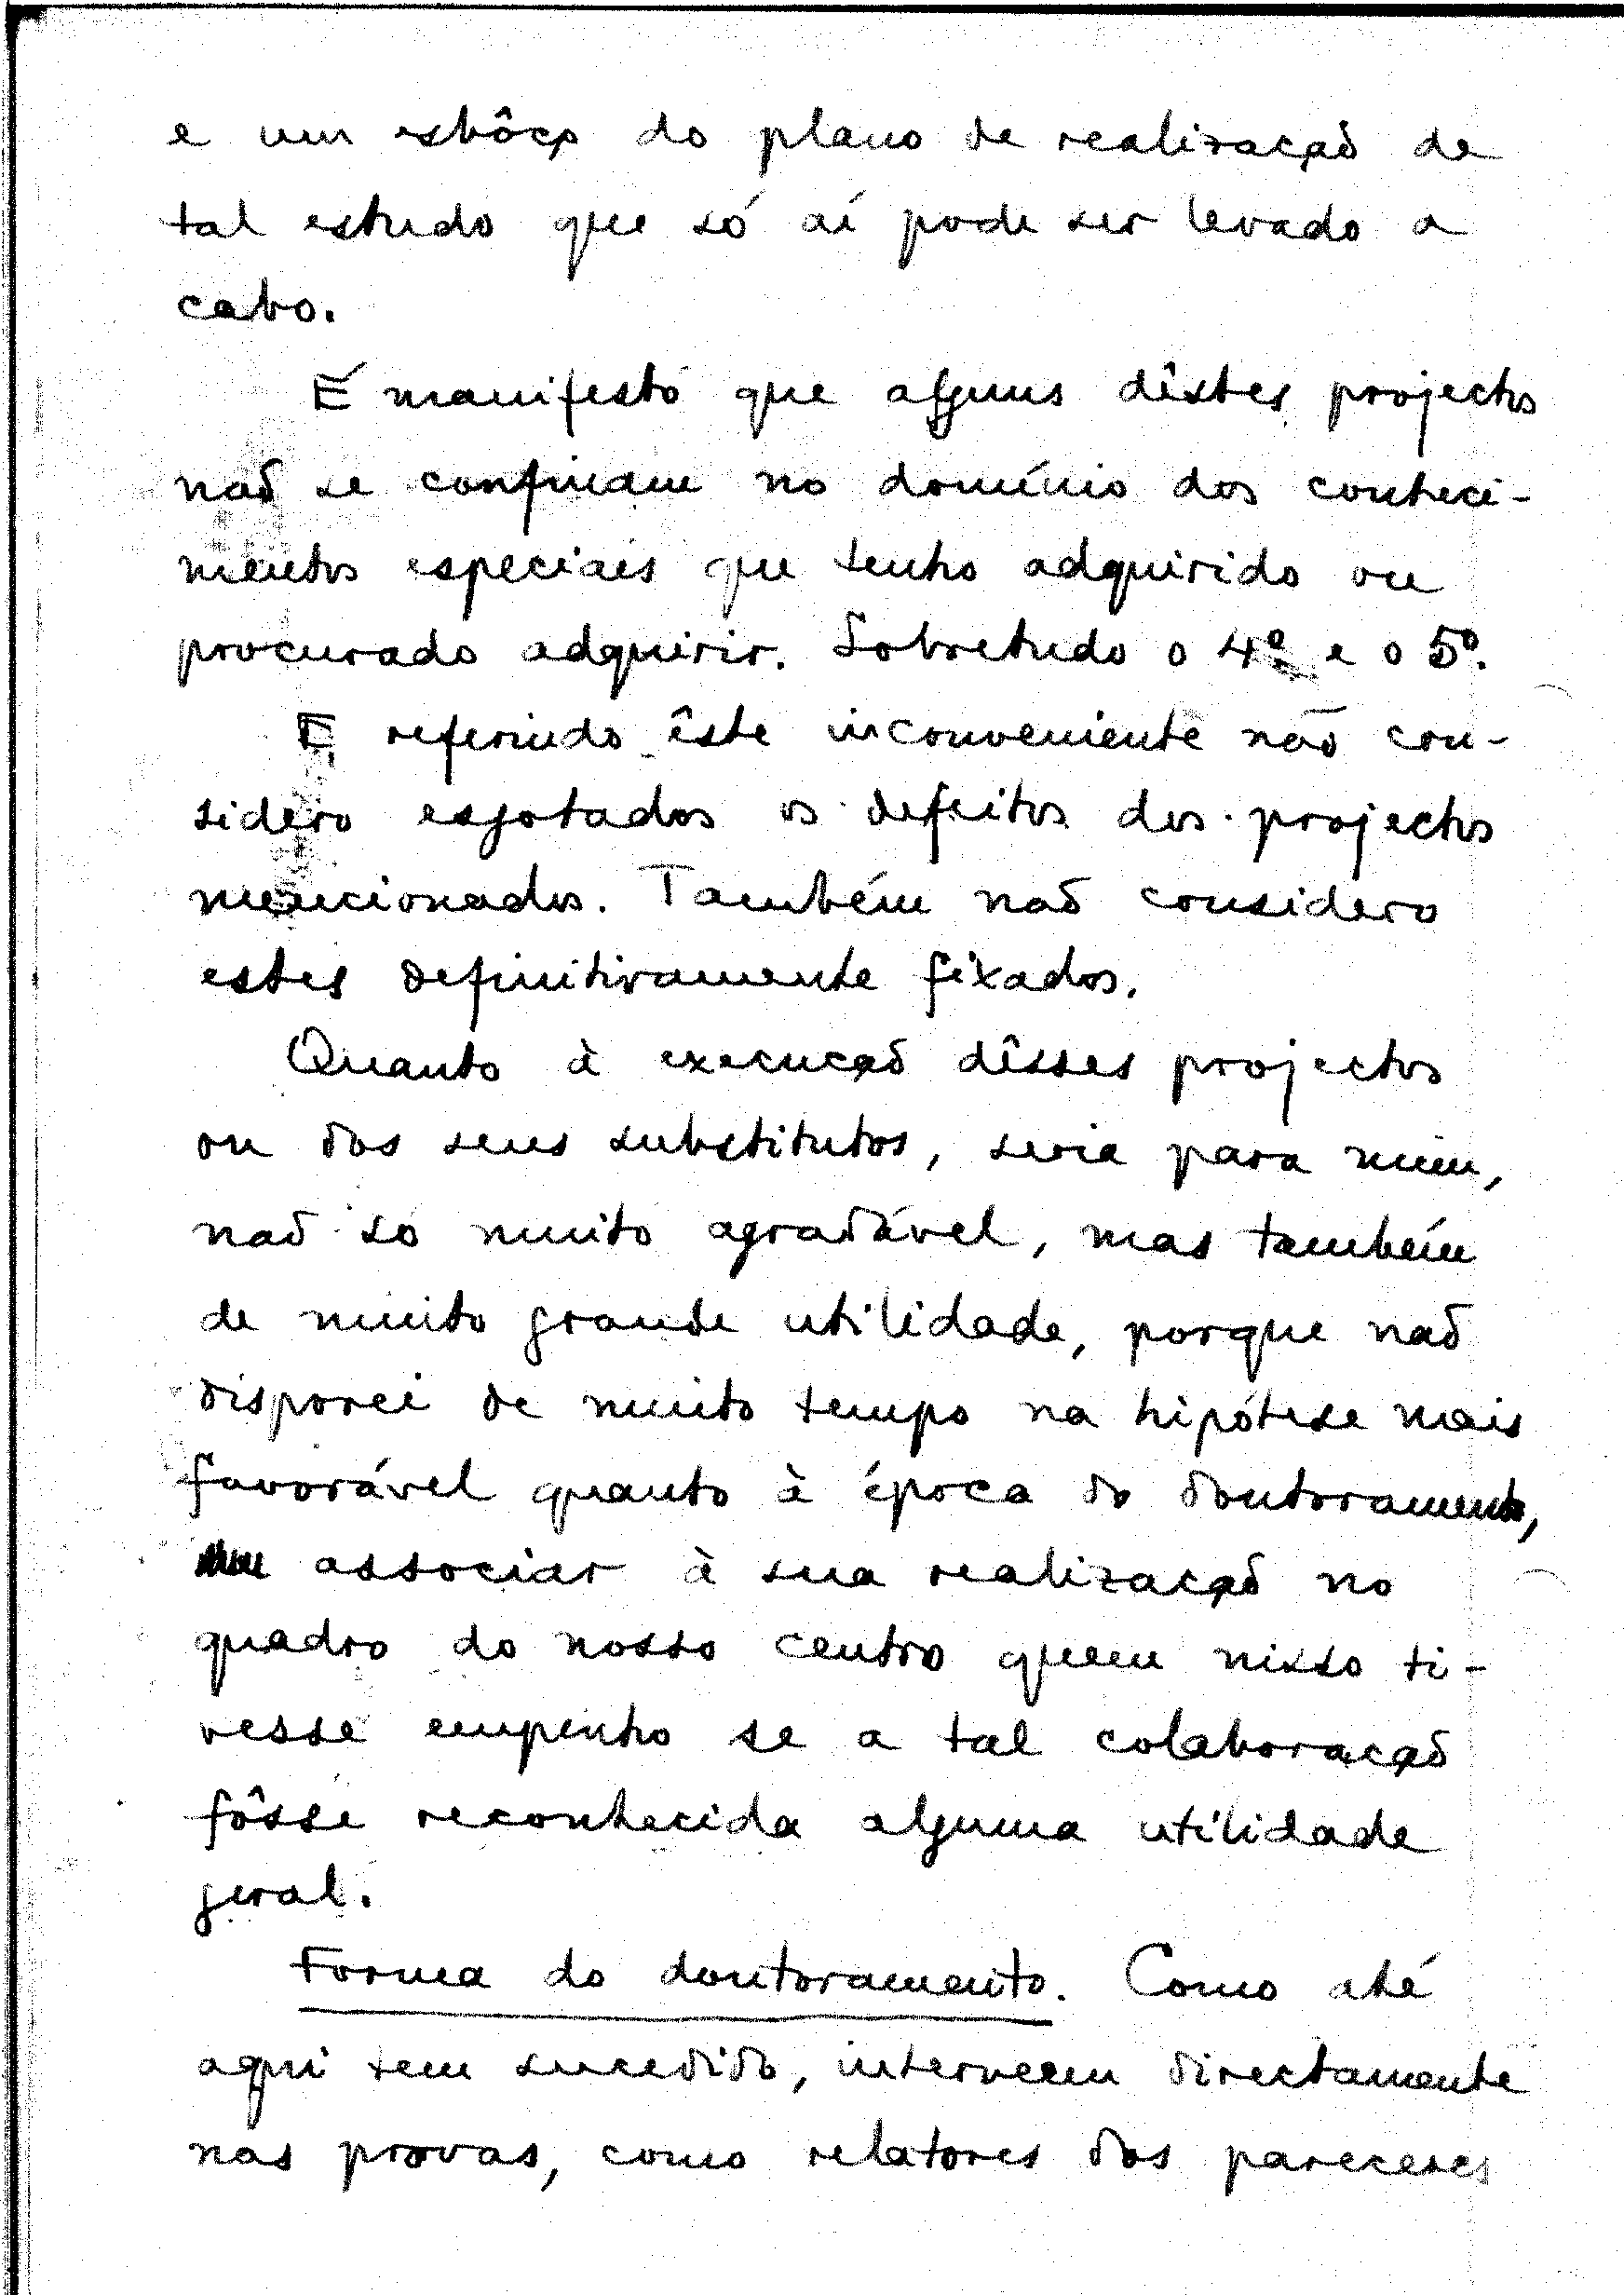 e um esbôço do plano de realização de
tal estudo que só aí pode ser levado a
cabo.
É manifesto que alguns dêstes projectos
não se confinam no domínio dos conheci-
mentos especiais que tenho adquirido ou
procurado adquirir. Sobretudo o 4º e o 5º.
E referindo êste inconveniente não con-
sidero esgotados os defeitos dos projectos
mencionados. Também não considero
estes definitivamente fixados.
Quanto à execução dêsses projectos
ou dos seus substitutos, seria para mim,
não só muito agradável, mas também
de muito grande utilidade, porque não
disporei de muito tempo na hipótese mais
favorável quanto à época do doutoramento,
associar à sua realização no
quadro do nosso centro quem nisso ti-
vesse empenho se a tal colaboração
fôsse reconhecida alguma utilidade
geral.
Forma do doutoramento. Como até
aqui tem sucedido, interveem directamente
nas provas, como relatores dos pareceres